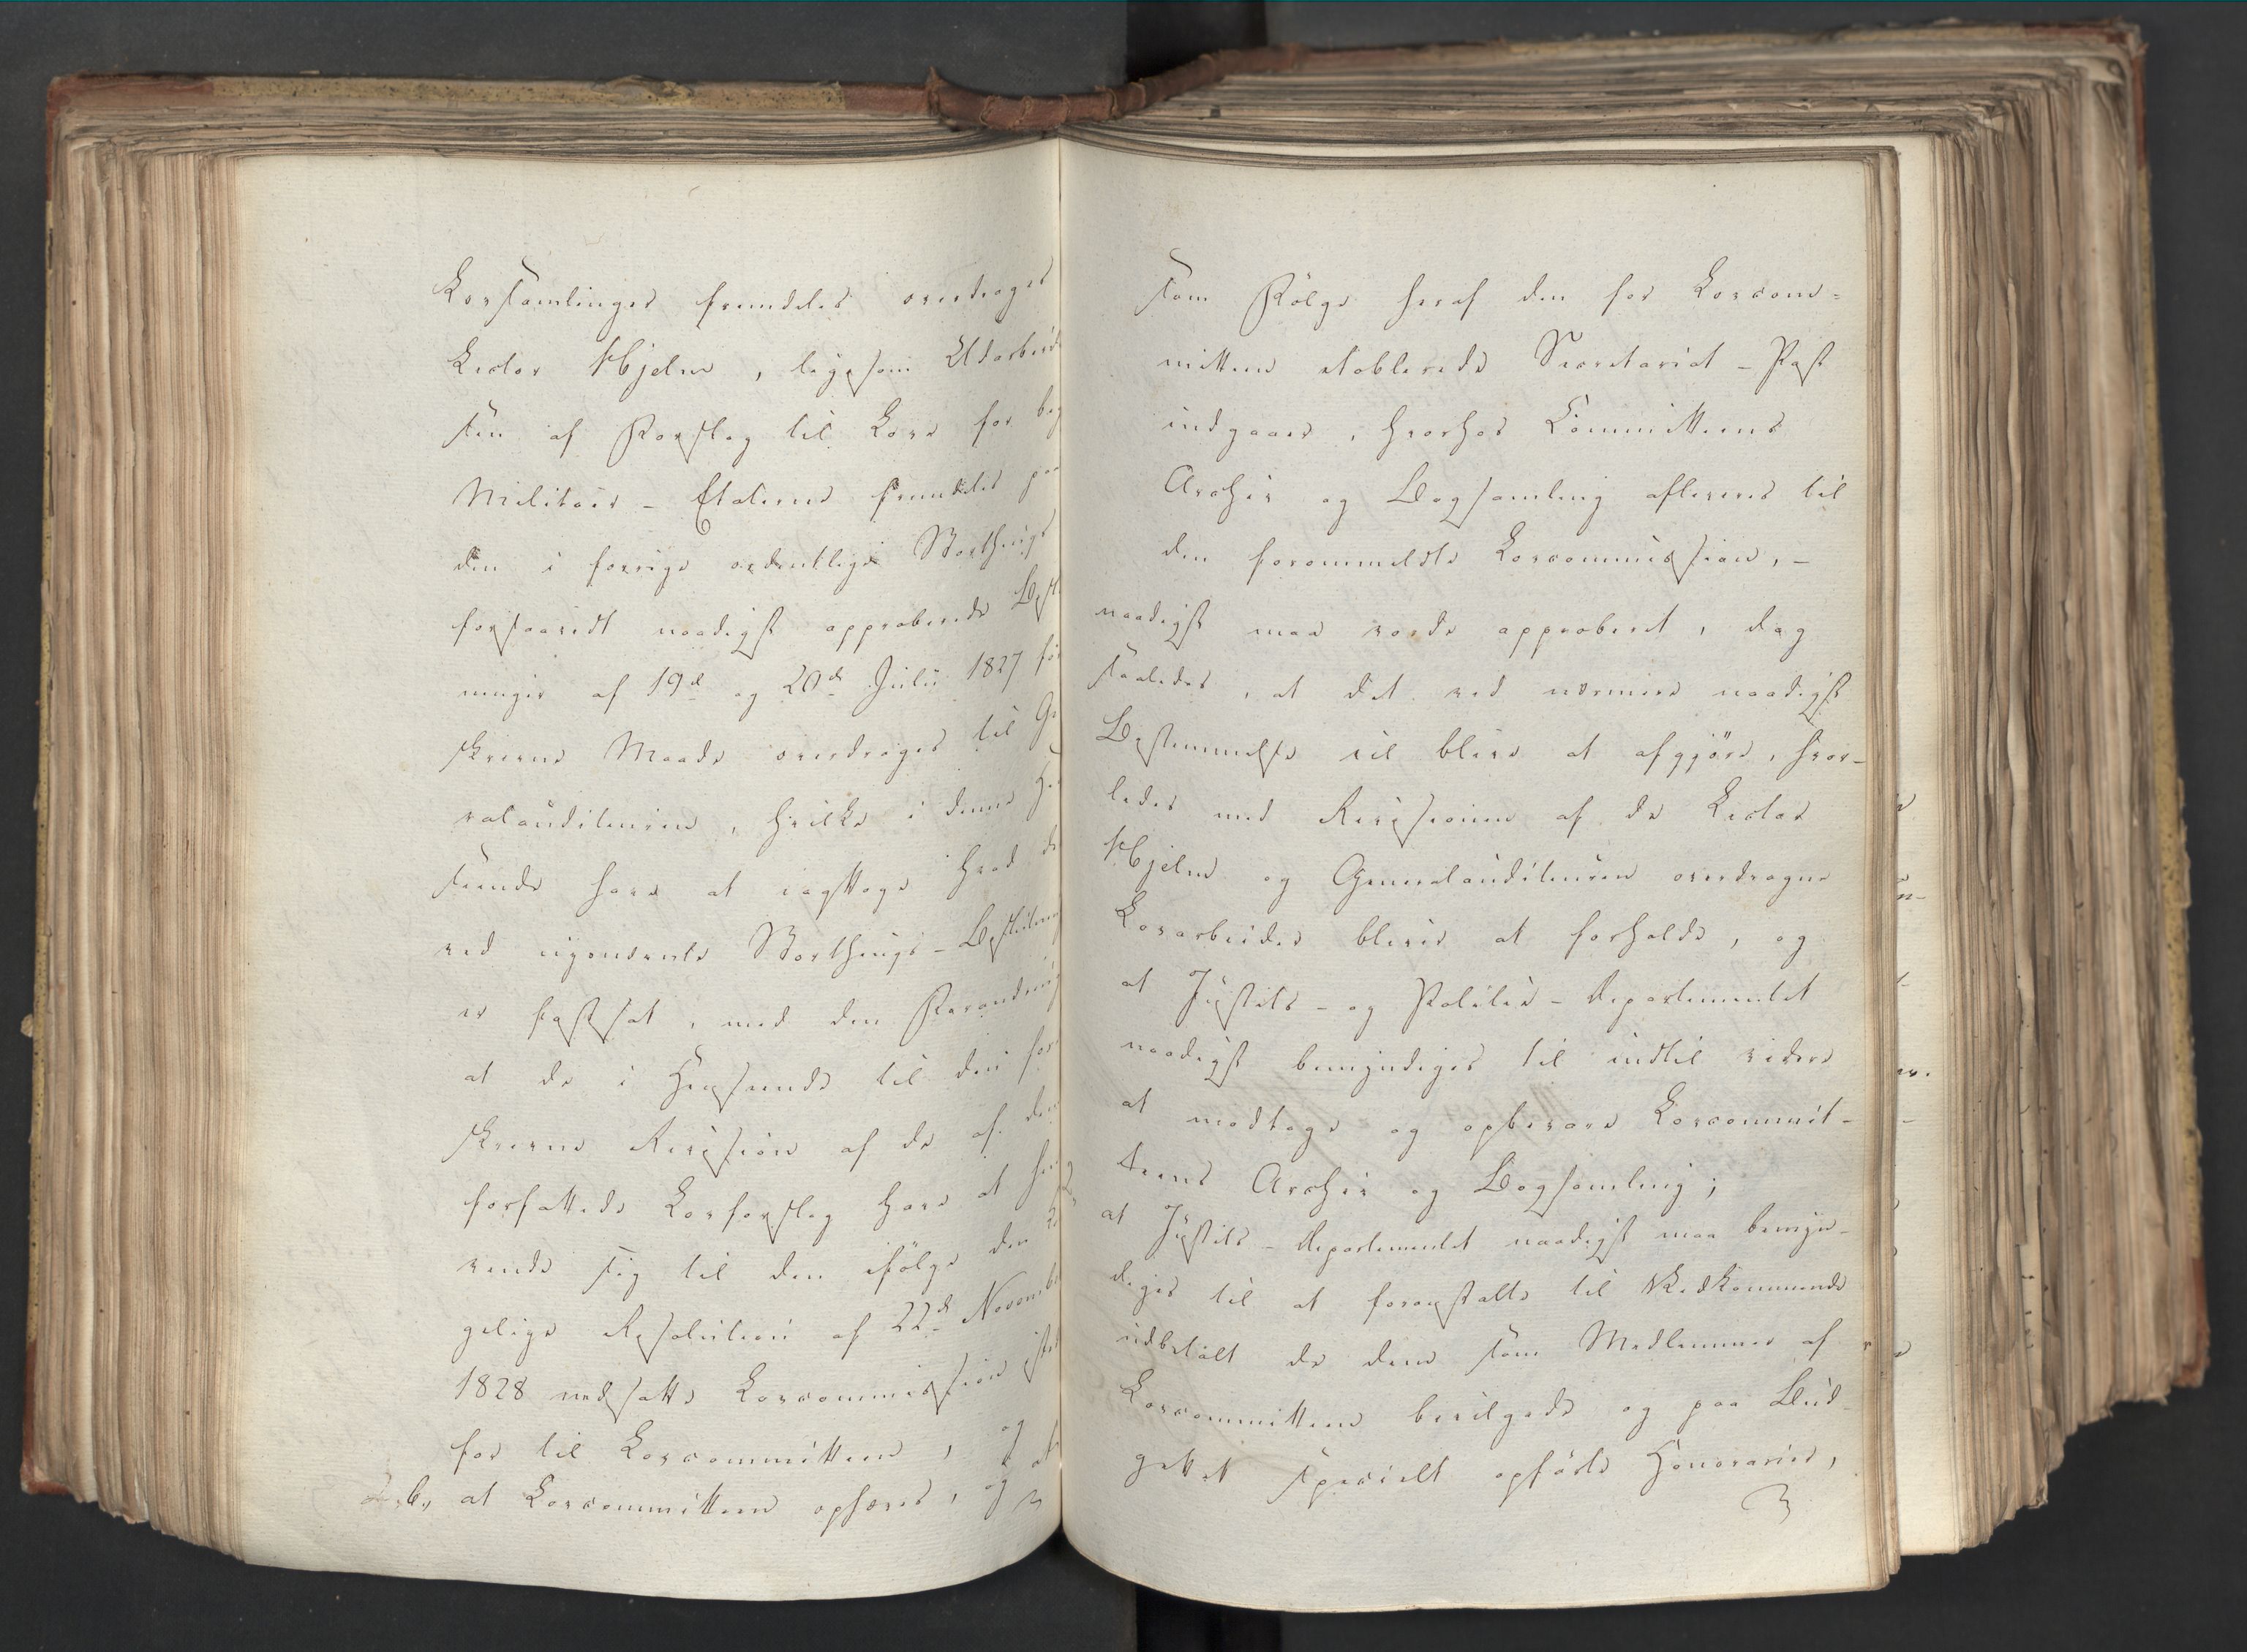 Lovsamlinger fremdeles overdrages
Lector Hjelm, ligesom Udarbeid
sen af Forslag til Love for beg
Militair-Etaterne fremdeles paa
den i forrige ordentlige Storthings
forsaavidt naadigst approberede Best
ninger af 19de og 20de Julii 1827 fore
skrevne Maade overdrages til Ge
ralauditeuren, hvilke i denne Hen
seende have at iagttage hvad der
ved nysnævnte Storthings-Beslutning
er fastsat, med den Forandring
at de i Henseende til den fore
skrevne Revision af de af dem
forfattede Lovforslag have at hen
vende sig til den ifølge den Ko
gelige Resolution af 22de Novembe
1828 nedsatte Lovcommission istede
for til Lovcommitteen, og
at Lovcommitteen ophæves, og at
som Følge heraf den for Lovcom-
mitteen etablerede Secretariat-Post
indgaaer, hvorhos Committeens
Archiv og Bogsamling afleveres til
den forommeldte Lovcommission, -
naadigst maa vorde approberet, dog
saaledes, at det ved nærmere naadigst
Bestemmelse vil blive at afgjøre, hvor-
ledes med Revisionen af de Lector
Hjelm og Generalauditeuren overdragne
Lovarbeider bliver at forholde, og
at Justits- og Politie-Departementet
naadigst bemyndiges til indtil videre
at modtage og opbevare Lovcommit-
teens Archiv og Bogsamling;
at Justits-Departementet naadigst maa bemyn-
diges til at foranstalte til Vedkommende
udbetalt de dem som Medlemmer af
Lovcommitteen bevilgede og paa Bud-
gettet specielt opførte Honorarier,